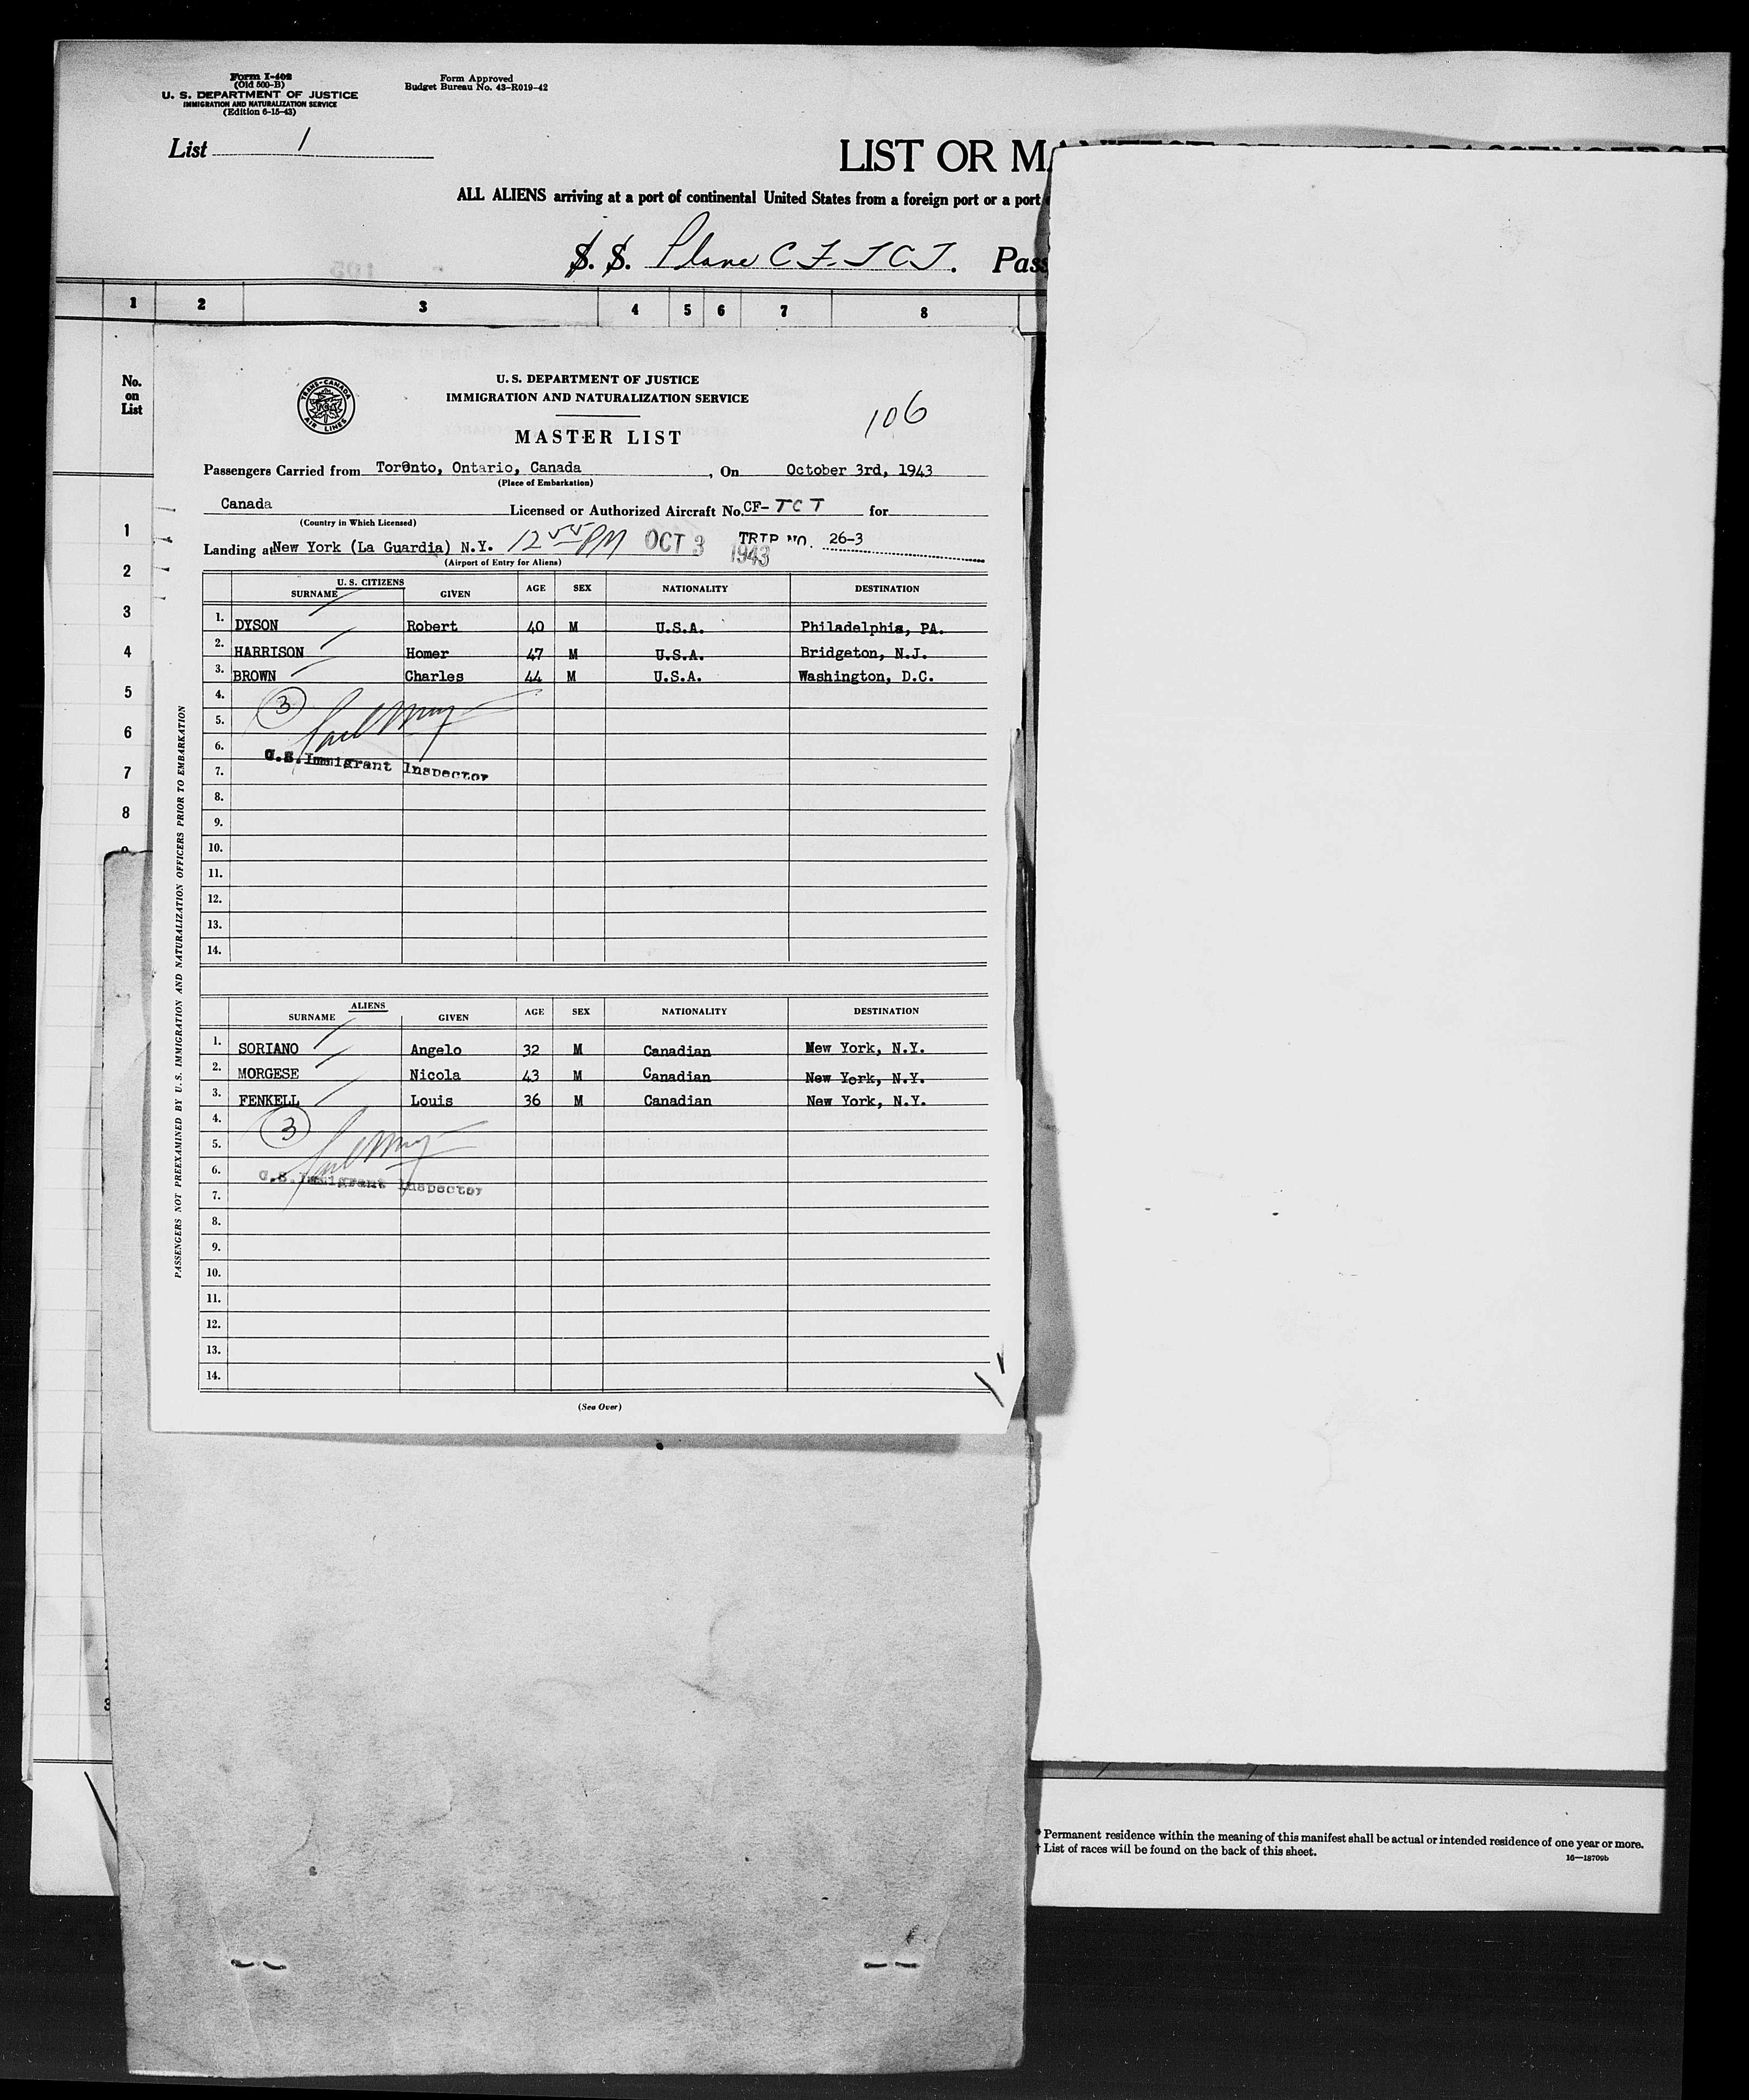 Form I-402
(Old 500-B)
U. S. DEPARTMENT OF JUSTICE
IMMIGRATION AND NATURALIZATION SERVICE
(Edition 6-15-43)
Form Approved
Budget Bureau No. 43-R019-42
List 1
LIST OR MA
ALL ALIENS arriving at a port of continental United States from a foreign port or a port
S. S. Plane CF-TCT. Pass
1 2 3 4 5 6 7 8
No.
on
List
1
2
3
4
5
6
7
8
TRANS-CANADA AIR LINES
U. S. DEPARTMENT OF JUSTICE
IMMIGRATION AND NATURALIZATION SERVICE
106
MASTER LIST
Passengers Carried from Toronto, Ontario, Canada, On October 3rd, 1943
(Place of Embarkation)
Canada Licensed or Authorized Aircraft No. CF-TCT for
(Country in Which Licensed)
Landing at New York (La Guardia) N.Y. 12 55 PM OCT 3 1943 TRIP NO. 26-3
(Airport of Entry for Aliens)
PASSENGERS NOT PREEXAMINED BY U.S. IMMIGRATION AND NATURALIZATION OFFICERS PRIOR TO EMBARKATION
U. S. CITIZENS
SURNAME GIVEN AGE SEX NATIONALITY DESTINATION
1. DYSON Robert 40 M U.S.A. Philadelphia, PA.
2. HARRISON Homer 47 M U.S.A. Bridgeton, N.J.
3. BROWN Charles 44 M U.S.A. Washington, D.C.
4. 3
5.
6.
U.S. Immigrant Inspector
7.
8.
9.
10.
11.
12.
13.
14.
ALIENS
SURNAME GIVEN AGE SEX NATIONALITY DESTINATION
1. SORIANO Angelo 32 M Canadian New York, N.Y.
2. MORGESE Nicola 43 M Canadian New York, N.Y.
3. FENKELL Louis 36 M Canadian New York, N.Y.
4. 3
5.
6.
U.S. Immigrant Inspector
7.
8.
9.
10.
11.
12.
13.
14.
(See Over)
* Permanent residence within the meaning of this manifest shall be actual or intended residence of one year or more.
† List of races will be found on the back of this sheet.
16—18709b